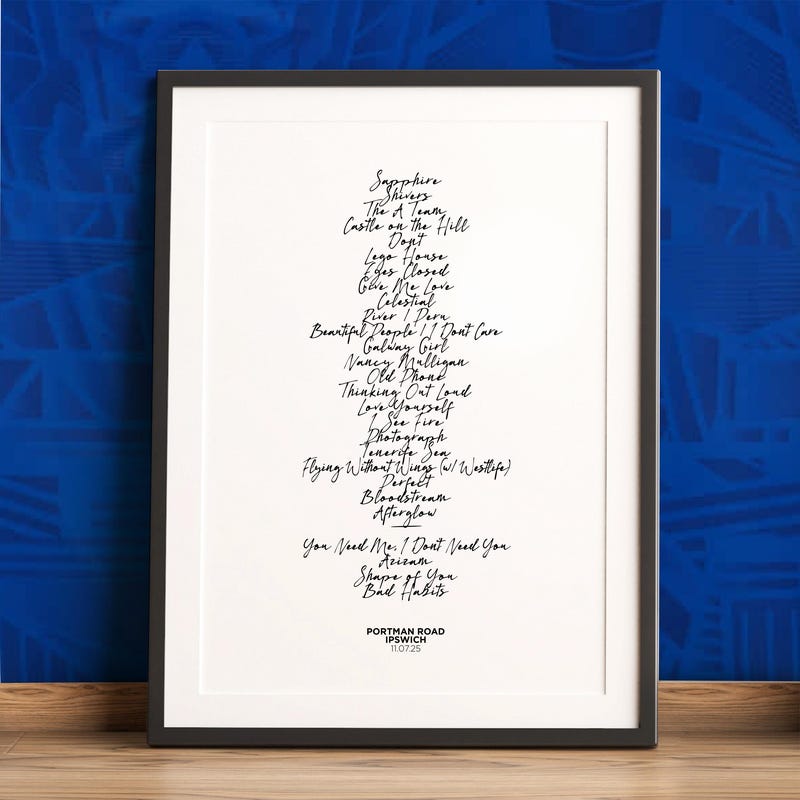 Sapphire
Shivers
The A Team
Castle on the Hill
Dont
Lego House
Eyes Closed
Give Me Love
Celestial
River / Peru
Beautiful People / I Dont Care
Galway Girl
Nancy Mulligan
Old Phone
Thinking Out Loud
Love Yourself
I See Fire
Photograph
Tenerife Sea
Flying Without Wings (w/ Westlife)
Perfect
Bloodstream
Afterglow
You Need Me, I Dont Need You
Azizam
Shape of You
Bad Habits
PORTMAN ROAD
IPSWICH
11.07.25